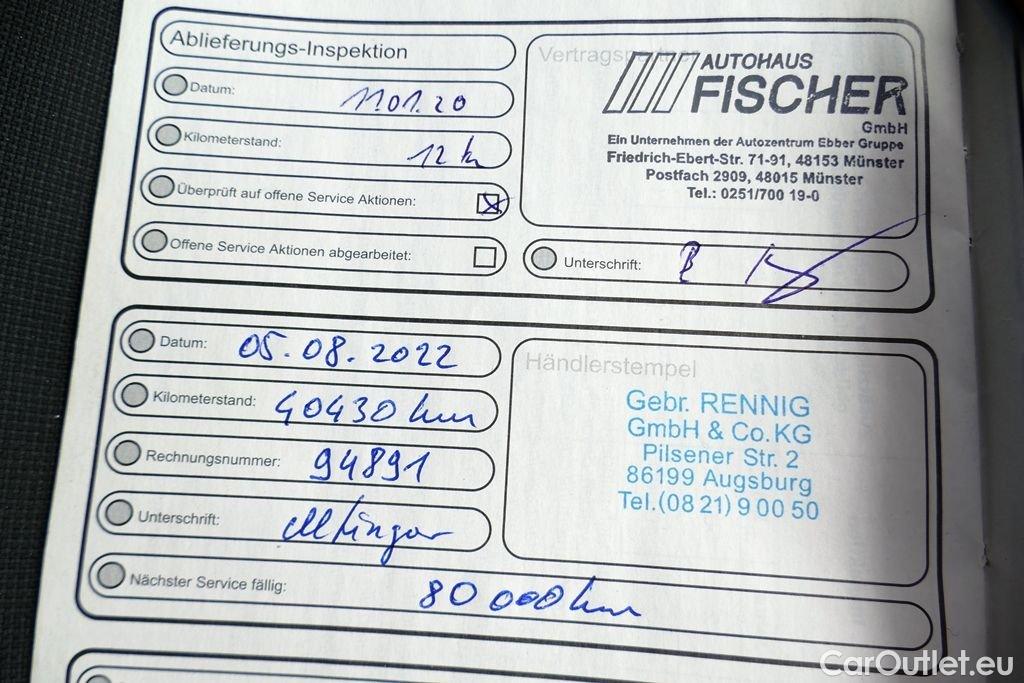 Ablieferungs-Inspektion
Datum: 1101.20
Kilometerstand: 12 km
Überprüft auf offene Service Aktionen:
Offene Service Aktionen abgearbeitet:
Vertragspartner
AUTOHAUS
FISCHER
GmbH
Ein Unternehmen der Autozentrum Ebber Gruppe
Friedrich-Ebert-Str. 71-91, 48153 Münster
Postfach 2909, 48015 Münster
Tel.: 0251/700 19-0
Unterschrift:
Datum: 05.08.2022
Kilometerstand: 40430 km
Rechnungsnummer: 94891
Unterschrift:
Nächster Service fällig: 80 000 km
Händlerstempel
Gebr. RENNIG
GmbH & Co.KG
Pilsener Str. 2
86199 Augsburg
Tel.(08 21) 9 00 50
CarOutlet.eu